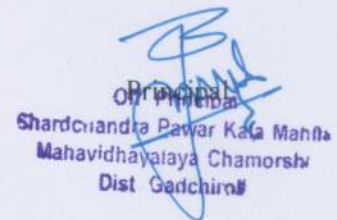 Principal
Off Principal
Shardchandra Pawar Kala Mahila
Mahavidhayalaya Chamorshi
Dist Gadchiroli